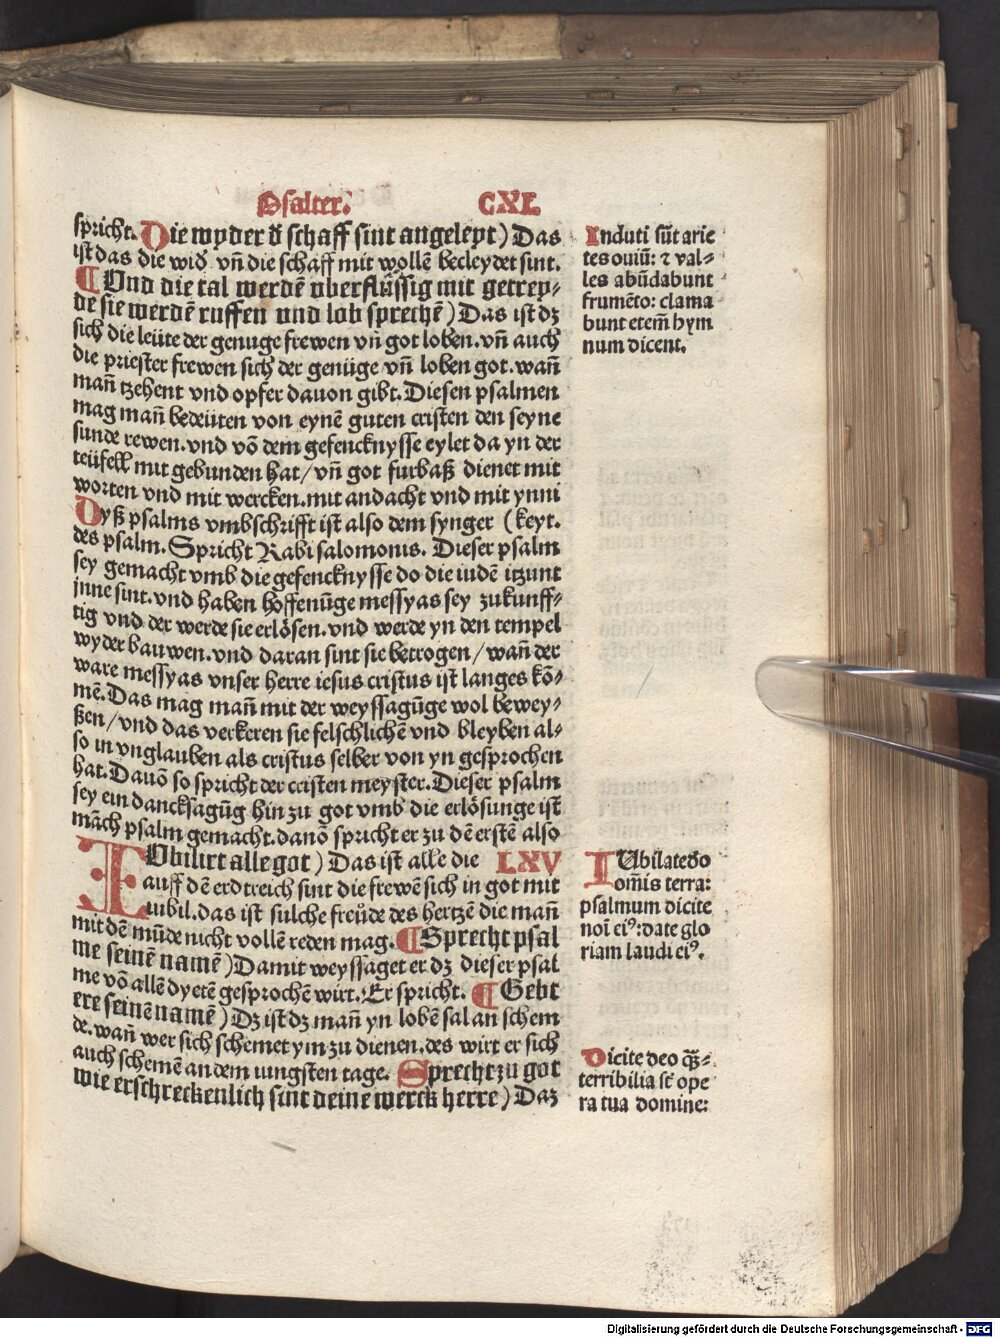 Psalter. CXL
spricht. Die wyder d̕ schaff sint angelept) Das
ist das die wid̕ vn̄ die schaff mit wollē becleydet sint.
¶ Vnd die tal werdē vberflüssig mit getrey⸗
de sie werdē ruffen vnd lob sprechē) Das ist dz
sich die leüte der genuge frewen vn̄ got loben. vn̄ auch
die priester frewen sich der genüge vn̄ loben got. wan̄
man̄ tzehent vnd opfer dauon gibt. Diesen psalmen
mag man̄ bedeüten von eynē guten cristen den seyne
sunde rewen. vnd vō dem gefencknysse eylet da yn der
teüfell mit gebunden hat/ vn̄ got furbaß dienet mit
worten vnd mit wercken. mit andacht vnd mit ynni
Dyß psalms vmbschrifft ist also dem synger (keyt.
des psalm. Spricht Rabi salomonis. Dieser psalm
sey gemacht vmb die gefencknysse do die iudē itzunt
jnne sint. vnd haben hoffenūge messyas sey zukunff⸗
tig vnd der werde sie erlösen. vnd werde yn den tempel
wyder bauwen. vnd daran sint sie betrogen/ wan̄ der
ware messyas vnser herre iesus cristus ist langes kō⸗
mē. Das mag man̄ mit der weyssagūge wol bewey⸗
ßen/ vnd das verkeren sie felschlichē vnd bleyben al⸗
so in vnglauben als cristus selber von yn gesprochen
hat. Dauō so spricht der cristen meyster. Dieser psalm
sey ein dancksagūg hin zu got vmb die erlösunge ist
māch psalm gemacht. danō spricht er zu dē erstē also
IVbilirt alle got) Das ist alle die LXV
auff dē erdtreich sint die frewē sich in got mit
iubil. das ist sulche freüde des hertzē die man̄
mit dē mūde nicht vollē reden mag. ¶ Sprecht psal
me seinē namē) Damit weyssaget er dz dieser psal
me vō allē dy etē gesprochē wirt. Er spricht. ¶ Gebt
ere seinē namē) Dz ist dz man̄ yn lobē sal an schem
de. wan̄ wer sich schemet ym zu dienen. des wirt er sich
auch schemē an dem iungsten tage. Sprecht zu got
wie erschreckenlich sint deine werck herre) Daz
Induti sūt arie
tes ouiū: ⁊ val⸗
les abūdabunt
frumēto: clama
bunt etem̄ hym
num dicent.
IUbilate do
om̄is terra:
psalmum dicite
noī eiꝰ: date glo
riam laudi eiꝰ.
Dicite deo q̄ꝫ⸗
terribilia st̄ ope
ra tua domine:
Digitalisierung gefördert durch die Deutsche Forschungsgemeinschaft - DFG